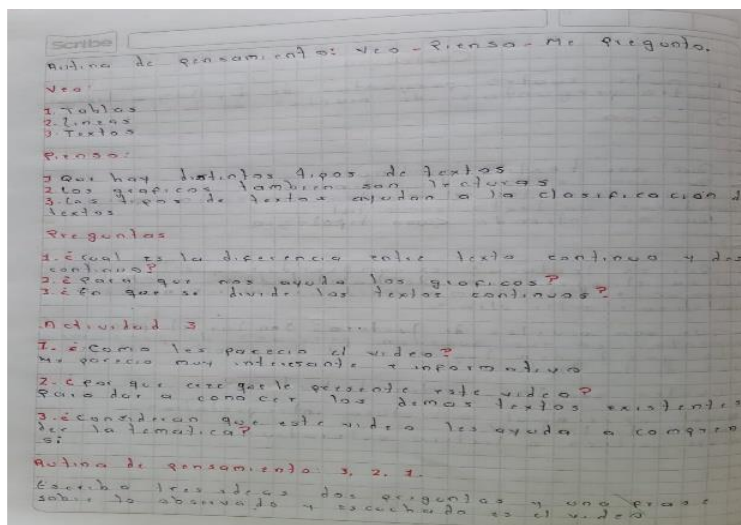 Scribe
Rutina de pensamiento: Veo - Pienso - Me pregunto.
Veo:
1. Tablas
2. Lineas
3. Textos
Pienso:
1 Que hay distintos tipos de textos
2 Los graficos tambien son lecturas
3. Los tipos de textos ayudan a la clasificacion d
textos
Preguntas
1. ¿cual es la diferencia entre texto continuo y des
continuo?
2. ¿Para que nos ayuda los graficos?
3. ¿En que se divide los textos continuos?
Actividad 3
1. ¿Como les parecio el video?
Me parecio muy interesante e informativo
2. ¿por que cree que le presente este video?
para dar a conocer los demas textos existentes
3. ¿consideran que este video les ayuda a compre
der la tematica?
si
Rutina de pensamiento 3, 2, 1.
Escriba tres ideas dos preguntas y una frase
sobre lo observado y escuchado es el video